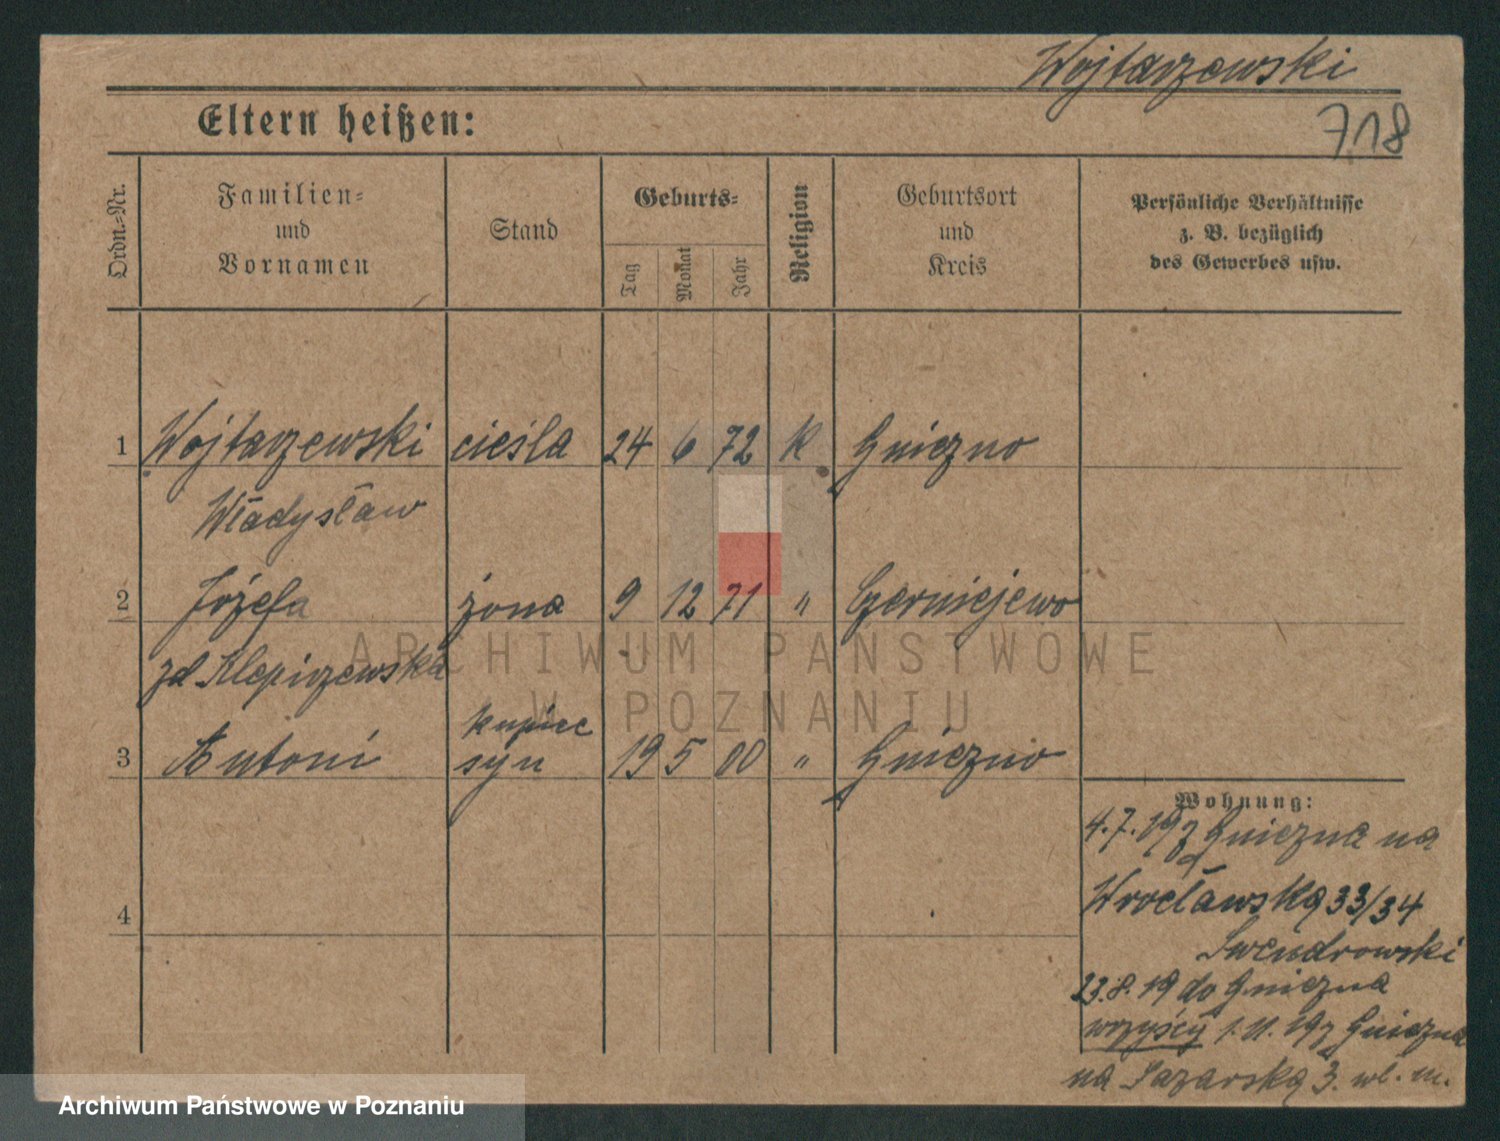 Wojtarzewski
Eltern heißen:
718
Ordn.-Nr.
Familien-
und
Vornamen
Stand
Geburts-
Tag
Monat
Jahr
Religion
Geburtsort
und
Kreis
Persönliche Verhältnisse
z. B. bezüglich
des Gewerbes usw.
1 Wojtarzewski cieśla 24 6 72 k Gniezno
Władysław
2 Józefa żona 9 12 71 " Czerniejewo
zd Klepiszewska
kupiec
3 Antoni syn 19 5 00 " Gniezno
4
Wohnung:
4.7.19 z Gniezna na
Wrocławską 33/34
Swendrowski
23.8.19 do Gniezna
wszyscy 1.11.19 z Gniezna
na Łazarską 3. wł. m.
ARCHIWUM PAŃSTWOWE
W POZNANIU
Archiwum Państwowe w Poznaniu